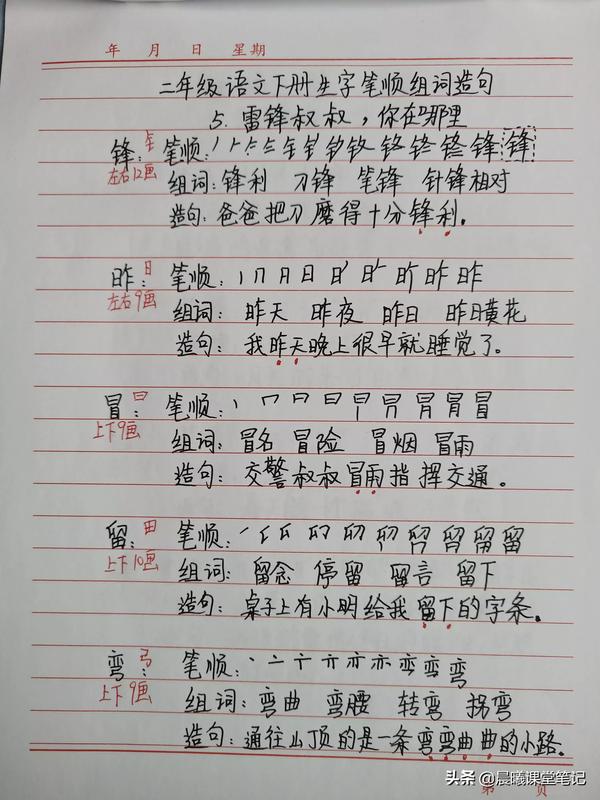 年 月 日 星期
二年级语文下册生字笔顺组词造句
5. 雷锋叔叔，你在哪里
锋：钅 笔顺：
左右12画 组词：锋利 刀锋 笔锋 针锋相对
造句：爸爸把刀磨得十分锋利。
昨：日 笔顺：丨 冂 月 日
左右9画 组词：昨天 昨夜 昨日 昨日黄花
造句：我昨天晚上很早就睡觉了。
冒：曰 笔顺：
上下9画 组词：冒名 冒险 冒烟 冒雨
造句：交警叔叔冒雨指挥交通。
留：田 笔顺：
上下10画 组词：留念 停留 留言 留下
造句：桌子上有小明给我留下的字条。
弯：弓 笔顺：
上下9画 组词：弯曲 弯腰 转弯 拐弯
造句：通往山顶的是一条弯弯曲曲的小路。
头条 @晨曦课堂笔记
第 页